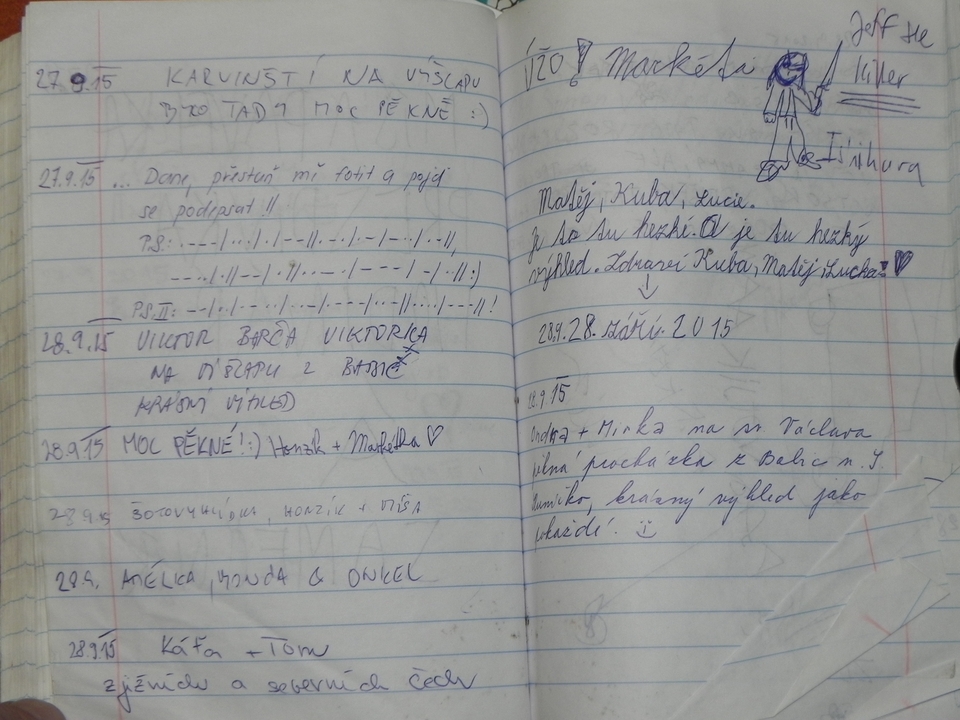 27.9.15 KARVINŠTÍ NA VÝŠLAPU
BYLO TADY MOC PĚKNĚ :)
27.9.15 ... Dane, přestaň mi fotit a pojď
se podepsat!!
P.S.:
:)
P.S.II:
28.9.15 VIKTOR BARČA VIKTORKA
NA VÝŠLAPU Z BABIC
KRÁSNÝ VÝHLED
28.9.15 MOC PĚKNÉ! :) Honzík + Markétka ♡
28.9.15 HONZÍK + MÍŠA
28.9. AMÉLKA, HONZA & ONKEL
28.9.15 Káťa + Tom
z jižních a severních Čech
ÝŽO! Markéta
Jeff the
killer
Matěj, Kuba, Lucie.
Je to tu hezké. A je tu hezký
výhled. Zdraví Kuba, Matěj, Lucka! ♥
28.9. 28. září. 2015
28.9.15
Ondra + Mirka na sv. Václava
pěkná procházka z Babic n. S.
krásný výhled jako
pokaždé! ☺